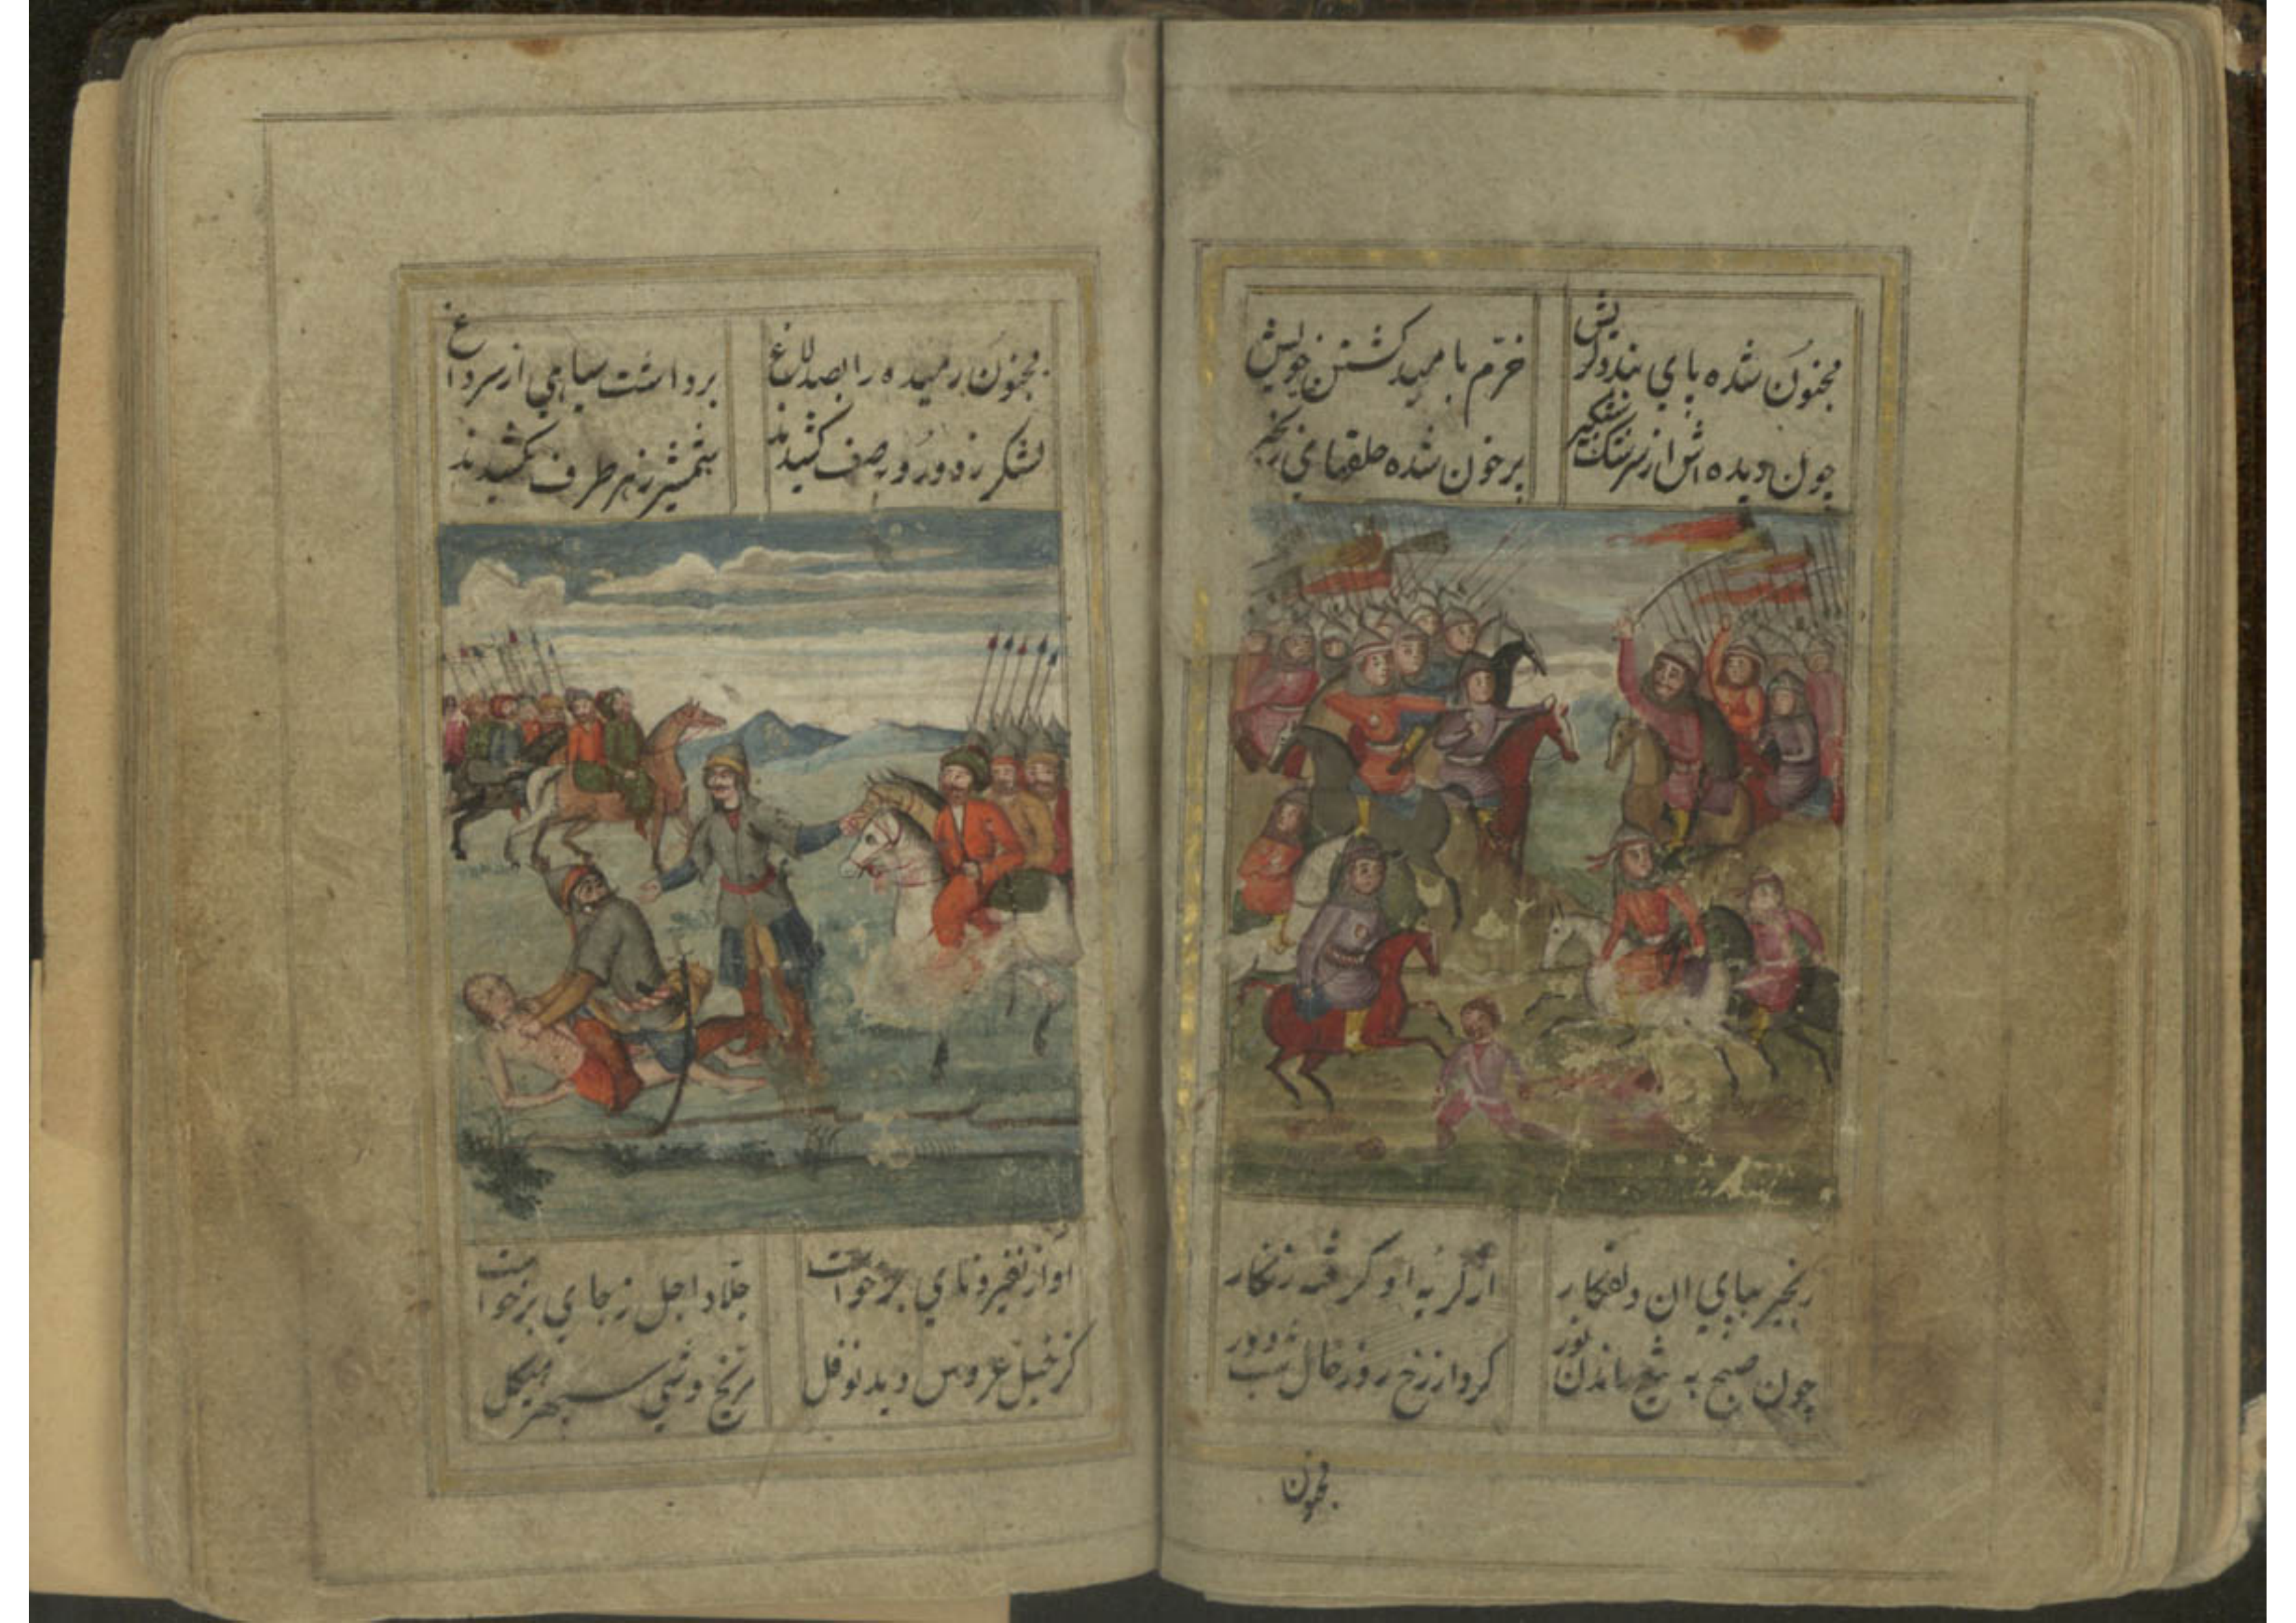 مجنون شده پای بند دلریش خرّم بامید کشتن خویش
چون دیده اش از سرشک شبگیر پرخون شده حلقهای زنجیر
زنجیر بپای ان دلفکار از کریه او کرفته زنکار
چون صبح به تیغ راندن نور کرد از رخ روز خال شب دور
مجنون
مجنون رمیده را بصد لاغ برداشت سیاهی از سر داغ
لشکر زد و رویه صف کشیدند شمشیر ز هر طرف کشیدند
اواز نفیر و نای برخواست جلّاد اجل ز جای برخواست
کز خیل عروس دید نوفل